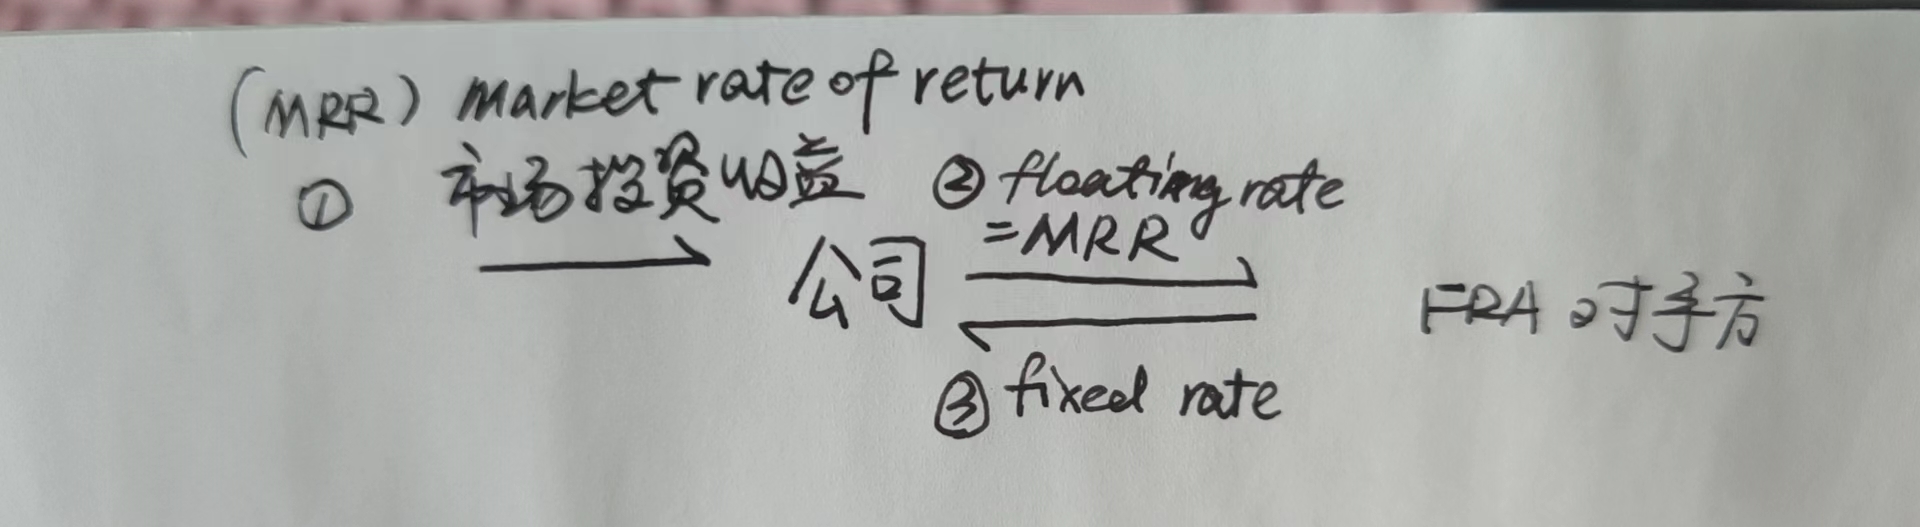 (MRR) market rate of return
① 市场投资收益
② floating rate
=MRR
公司
FRA 对手方
③ fixed rate